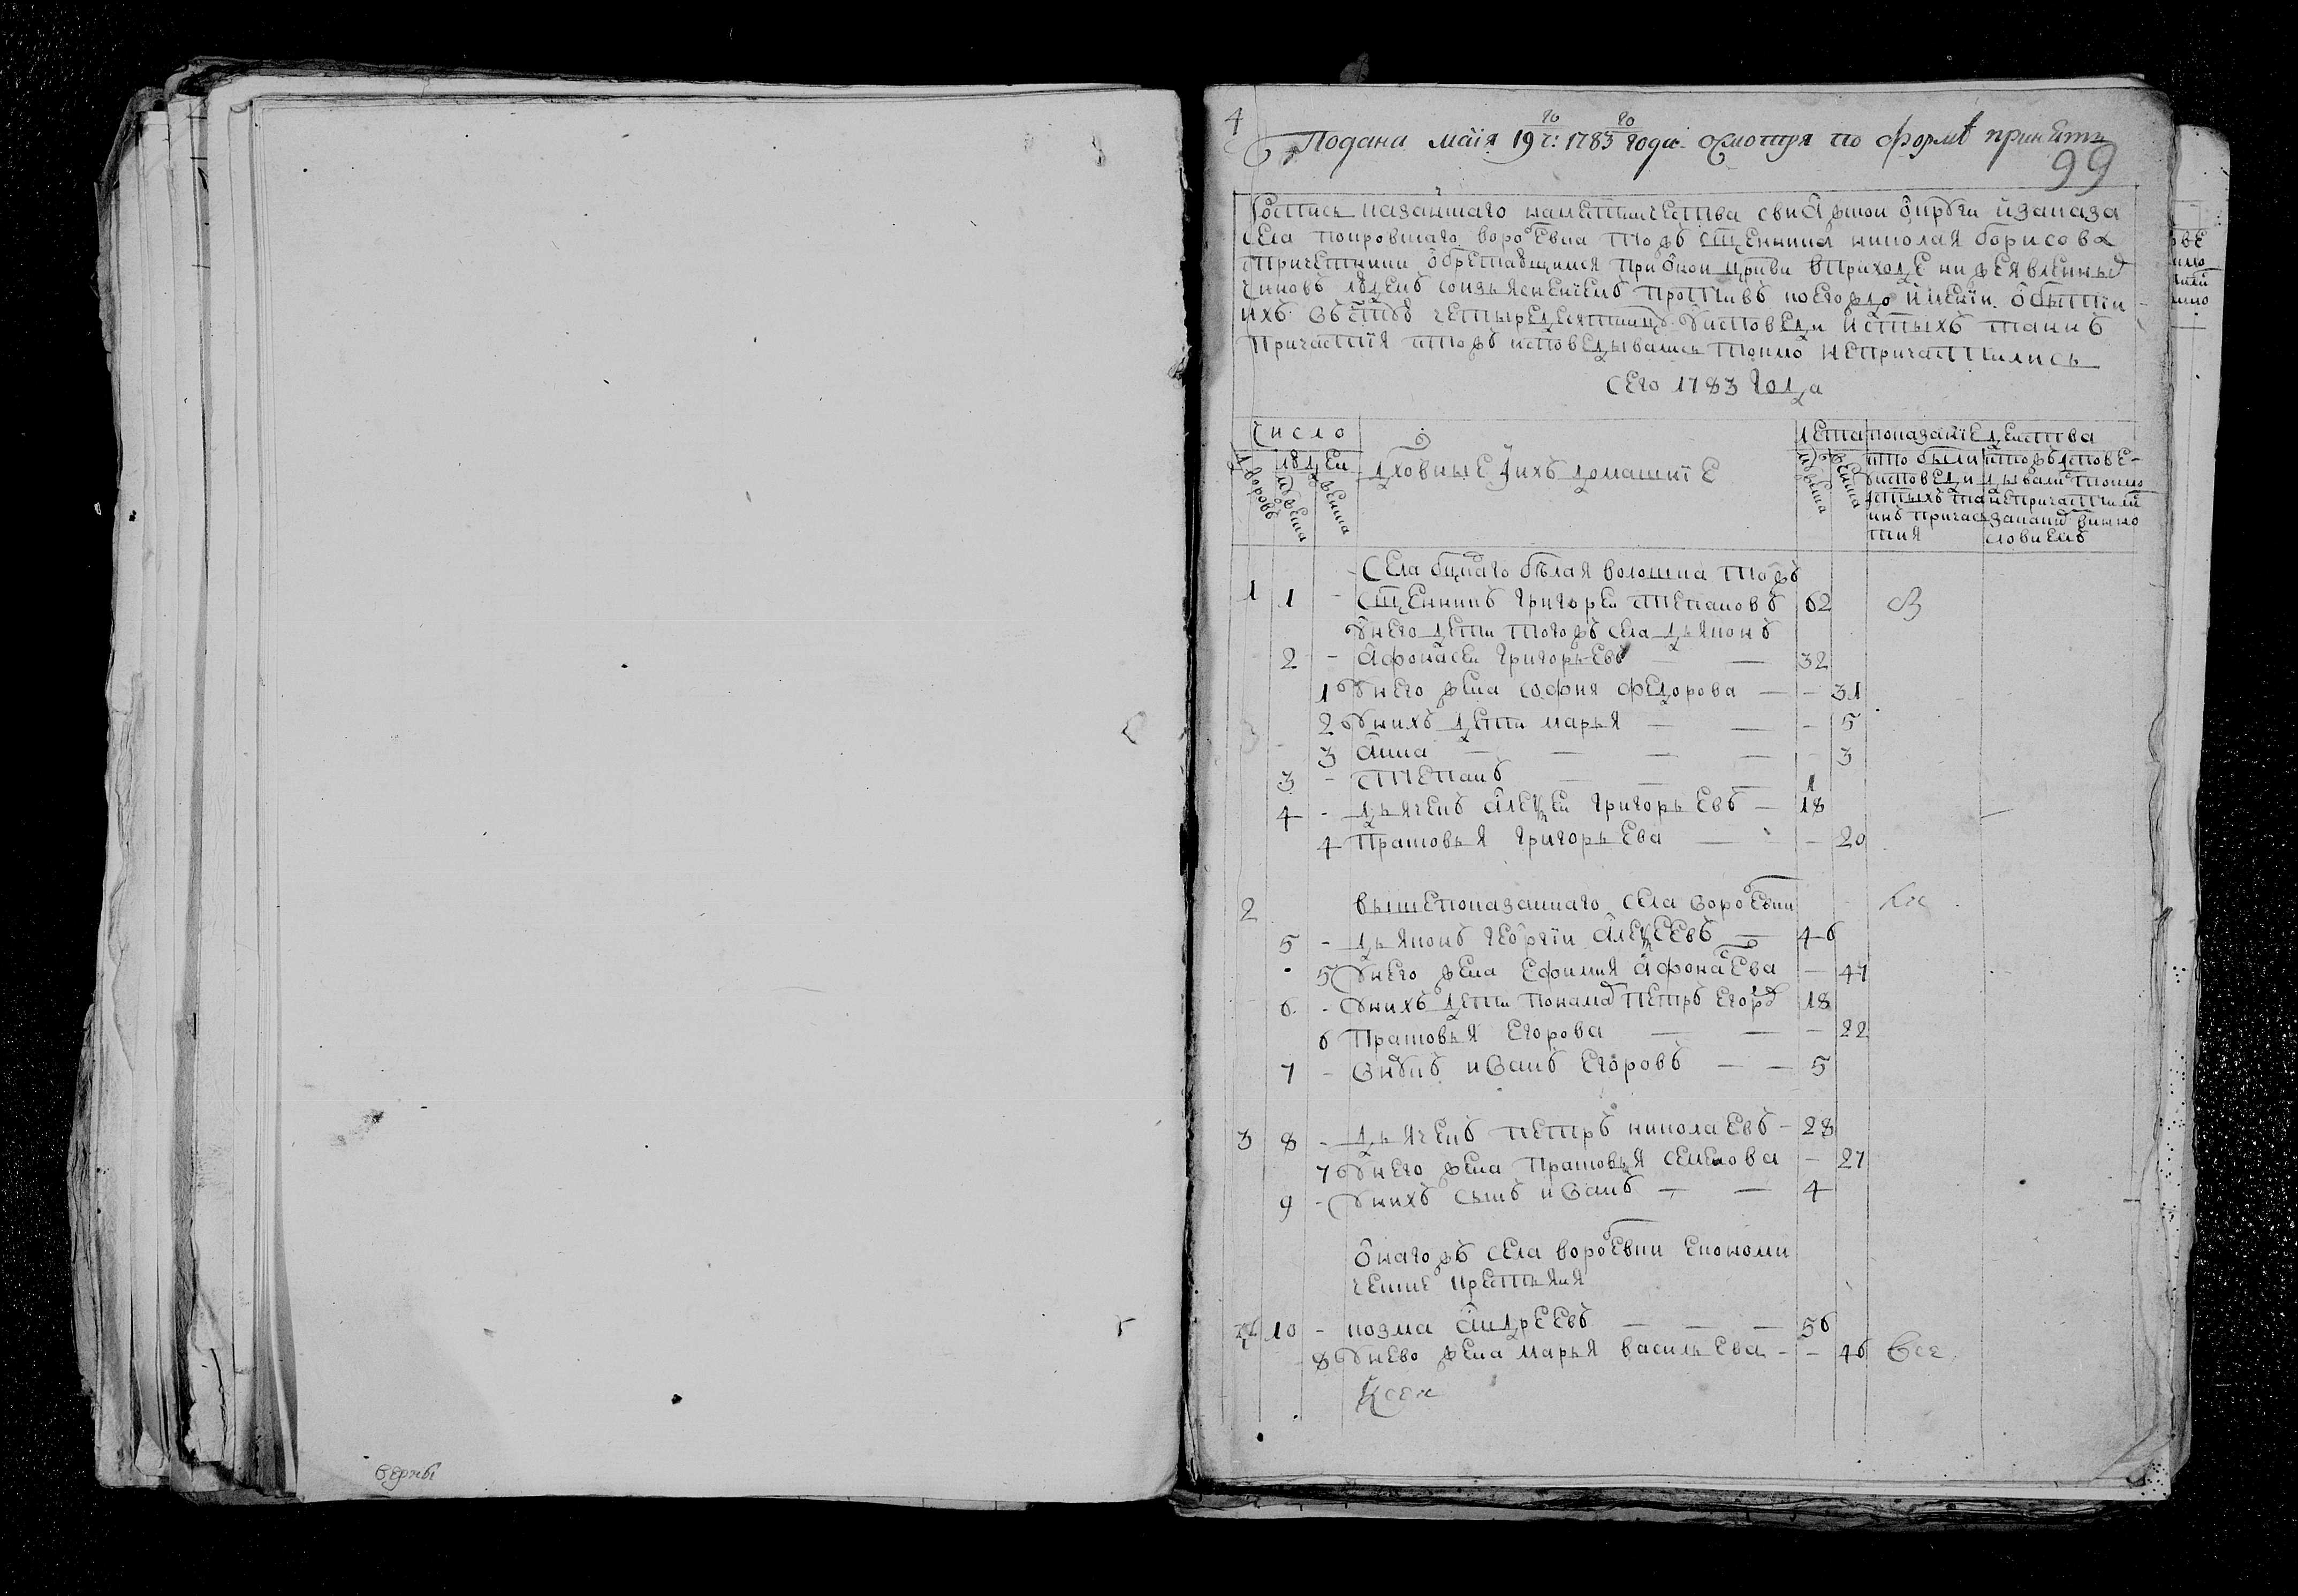 4
Подана маїя 19 го ч: 1783 го года осмотря по формѣ принять
99
Роспись казанскаго намѣстничества свияжской округи и заказа
села покровскаго воробевка тожъ священника николая борисова
спричетники обретающимся при оной церкви вприходе нижеявленныхъ
чиновъ людемъ соизъяснениемъ противъ коегождо имени о бытии
ихъ въ святую четыредесятницу у исповеди и святыхъ таинъ
причастїя и ктожъ исповедывались токмо непричастились
сего 1783 года
число
дворовъ
людей
мужеска
женска
духовные и ихъ домашнїе
лета
мужеска
женска
показанїе действа
кто были уисповеди и святыхъ таинъ причастия
ктожъ исповедывались токмо непричастились закаким винословиемъ
Села белая волошка тожъ
1 1 - священникъ григорей степановъ 62
унего дети тогожъ села дьяконъ
2 - афонасей григорьевъ — — 32
1 унего жена софия федорова — - 31
2 унихъ дети марья — — - 5
3 анна — — — — - 3
3 - степанъ — — 1
4 - дьячекъ алексей григорьевъ — 18
4 прасковья григорьева — - 20
2 вышепоказаннаго села воробевки
5 - дьяконъ георгїи алексеевъ — 46
5 унего жена ефимия афонасева — 47
6 - унихъ дети понамарь петръ егоровъ 18
6 прасковья егорова — — - 22
7 - внукъ иванъ егоровъ — — 5
3 8 - дьячекъ петръ николаевъ - 28
7 унего жена прасковья семенова - 27
9 - унихъ сынъ иванъ — — 4
онагожъ села воробевки економи
ческие крестьяня
4 10 - козма андреевъ — — — 56
8 унево жена марья васильева - - 46 все